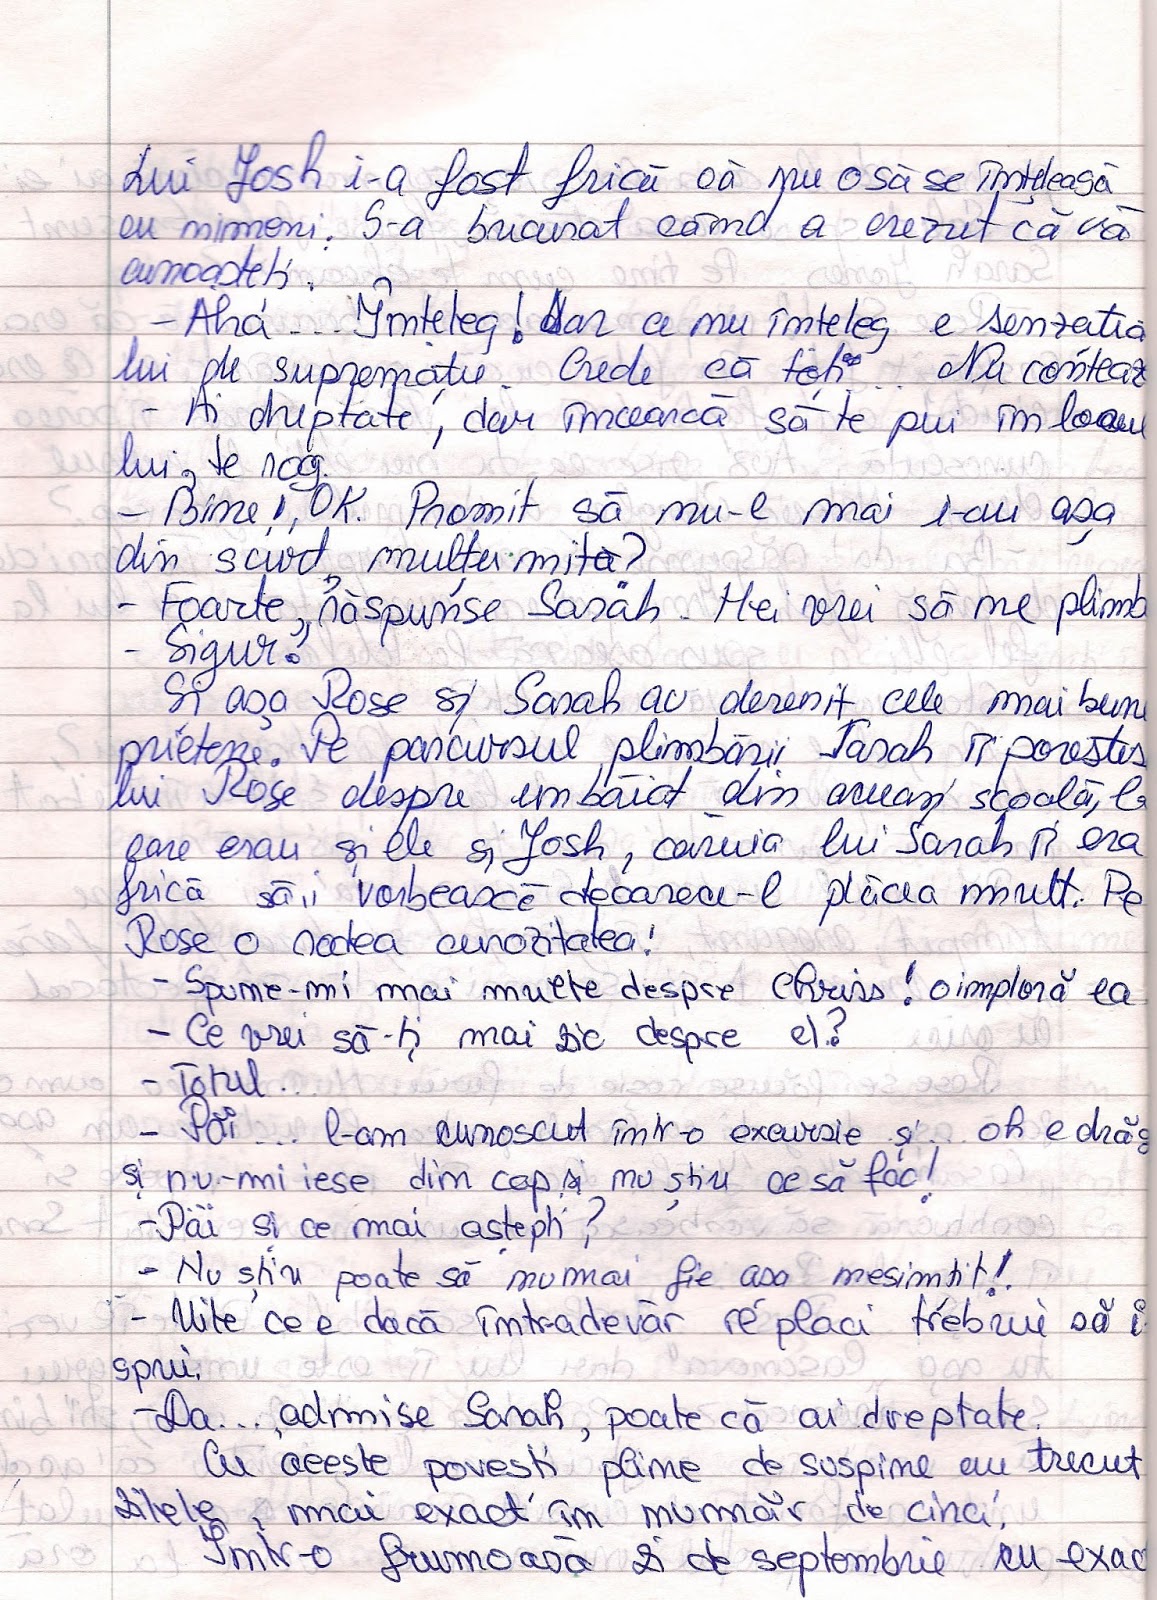 Lui Josh i-a fost frică că nu o să se înțeleagă
cu nimeni. S-a bucurat când a crezut că vă
cunoașteți.
- Aha... Înțeleg! Dar ce nu înțeleg e senzația
lui de suprematie. Crede că toți... Nu conteaz
- Ai dreptate, dar încearcă să te pui în locul
lui, te rog.
- Bine!, OK. Promit să nu-l mai i-au așa
din scurt, mulțumită?
- Foarte, răspunse Sarah. Hei vrei să ne plimb
- Sigur!
Și așa Rose și Sarah au devenit cele mai bune
prietene. Pe parcursul plimbării Sarah îi povestes
lui Rose despre un băiat din aceeași școală, la
care erau și ele și Josh, căruia lui Sarah îi era
frică să-i vorbească deoarece-l plăcea mult. Pe
Rose o rodea curiozitatea!
- Spune-mi mai multe despre Chriss! o imploră ea
- Ce vrei să-ți mai zic despre el?
- Totul.
- Păi... l-am cunoscut într-o excursie și... oh e drăg
și nu-mi iese din cap și nu știu ce să fac!
- Păi și ce mai aștepti?
- Nu știu poate să numai fie asa nesimtit!
- Uite ce e dacă într-adevăr îl placi trebuie să i
spui.
- Da..., admise Sarah, poate că ai dreptate.
Cu aceste povesti pline de suspine au trecut
zilele, mai exact în număr de cinci.
Într-o frumoasă zi de septembrie cu exac